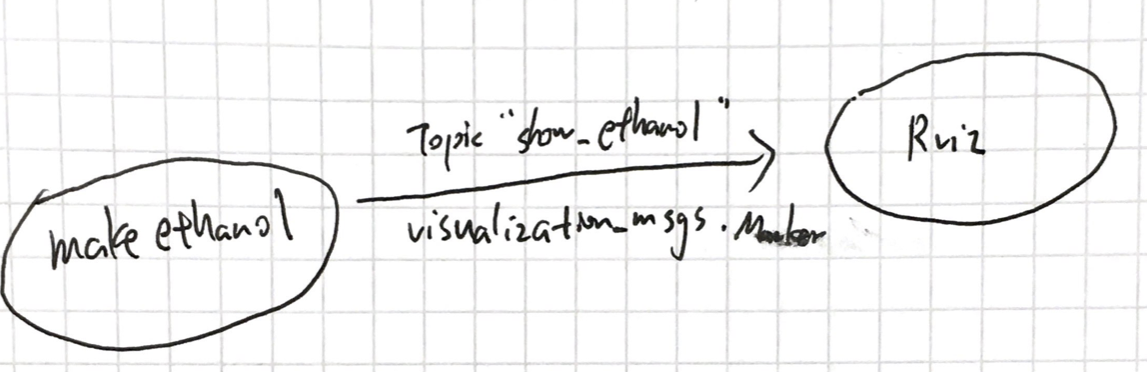 make ethanol
Topic "show_ethanol"
visualization_msgs.Marker
Rviz